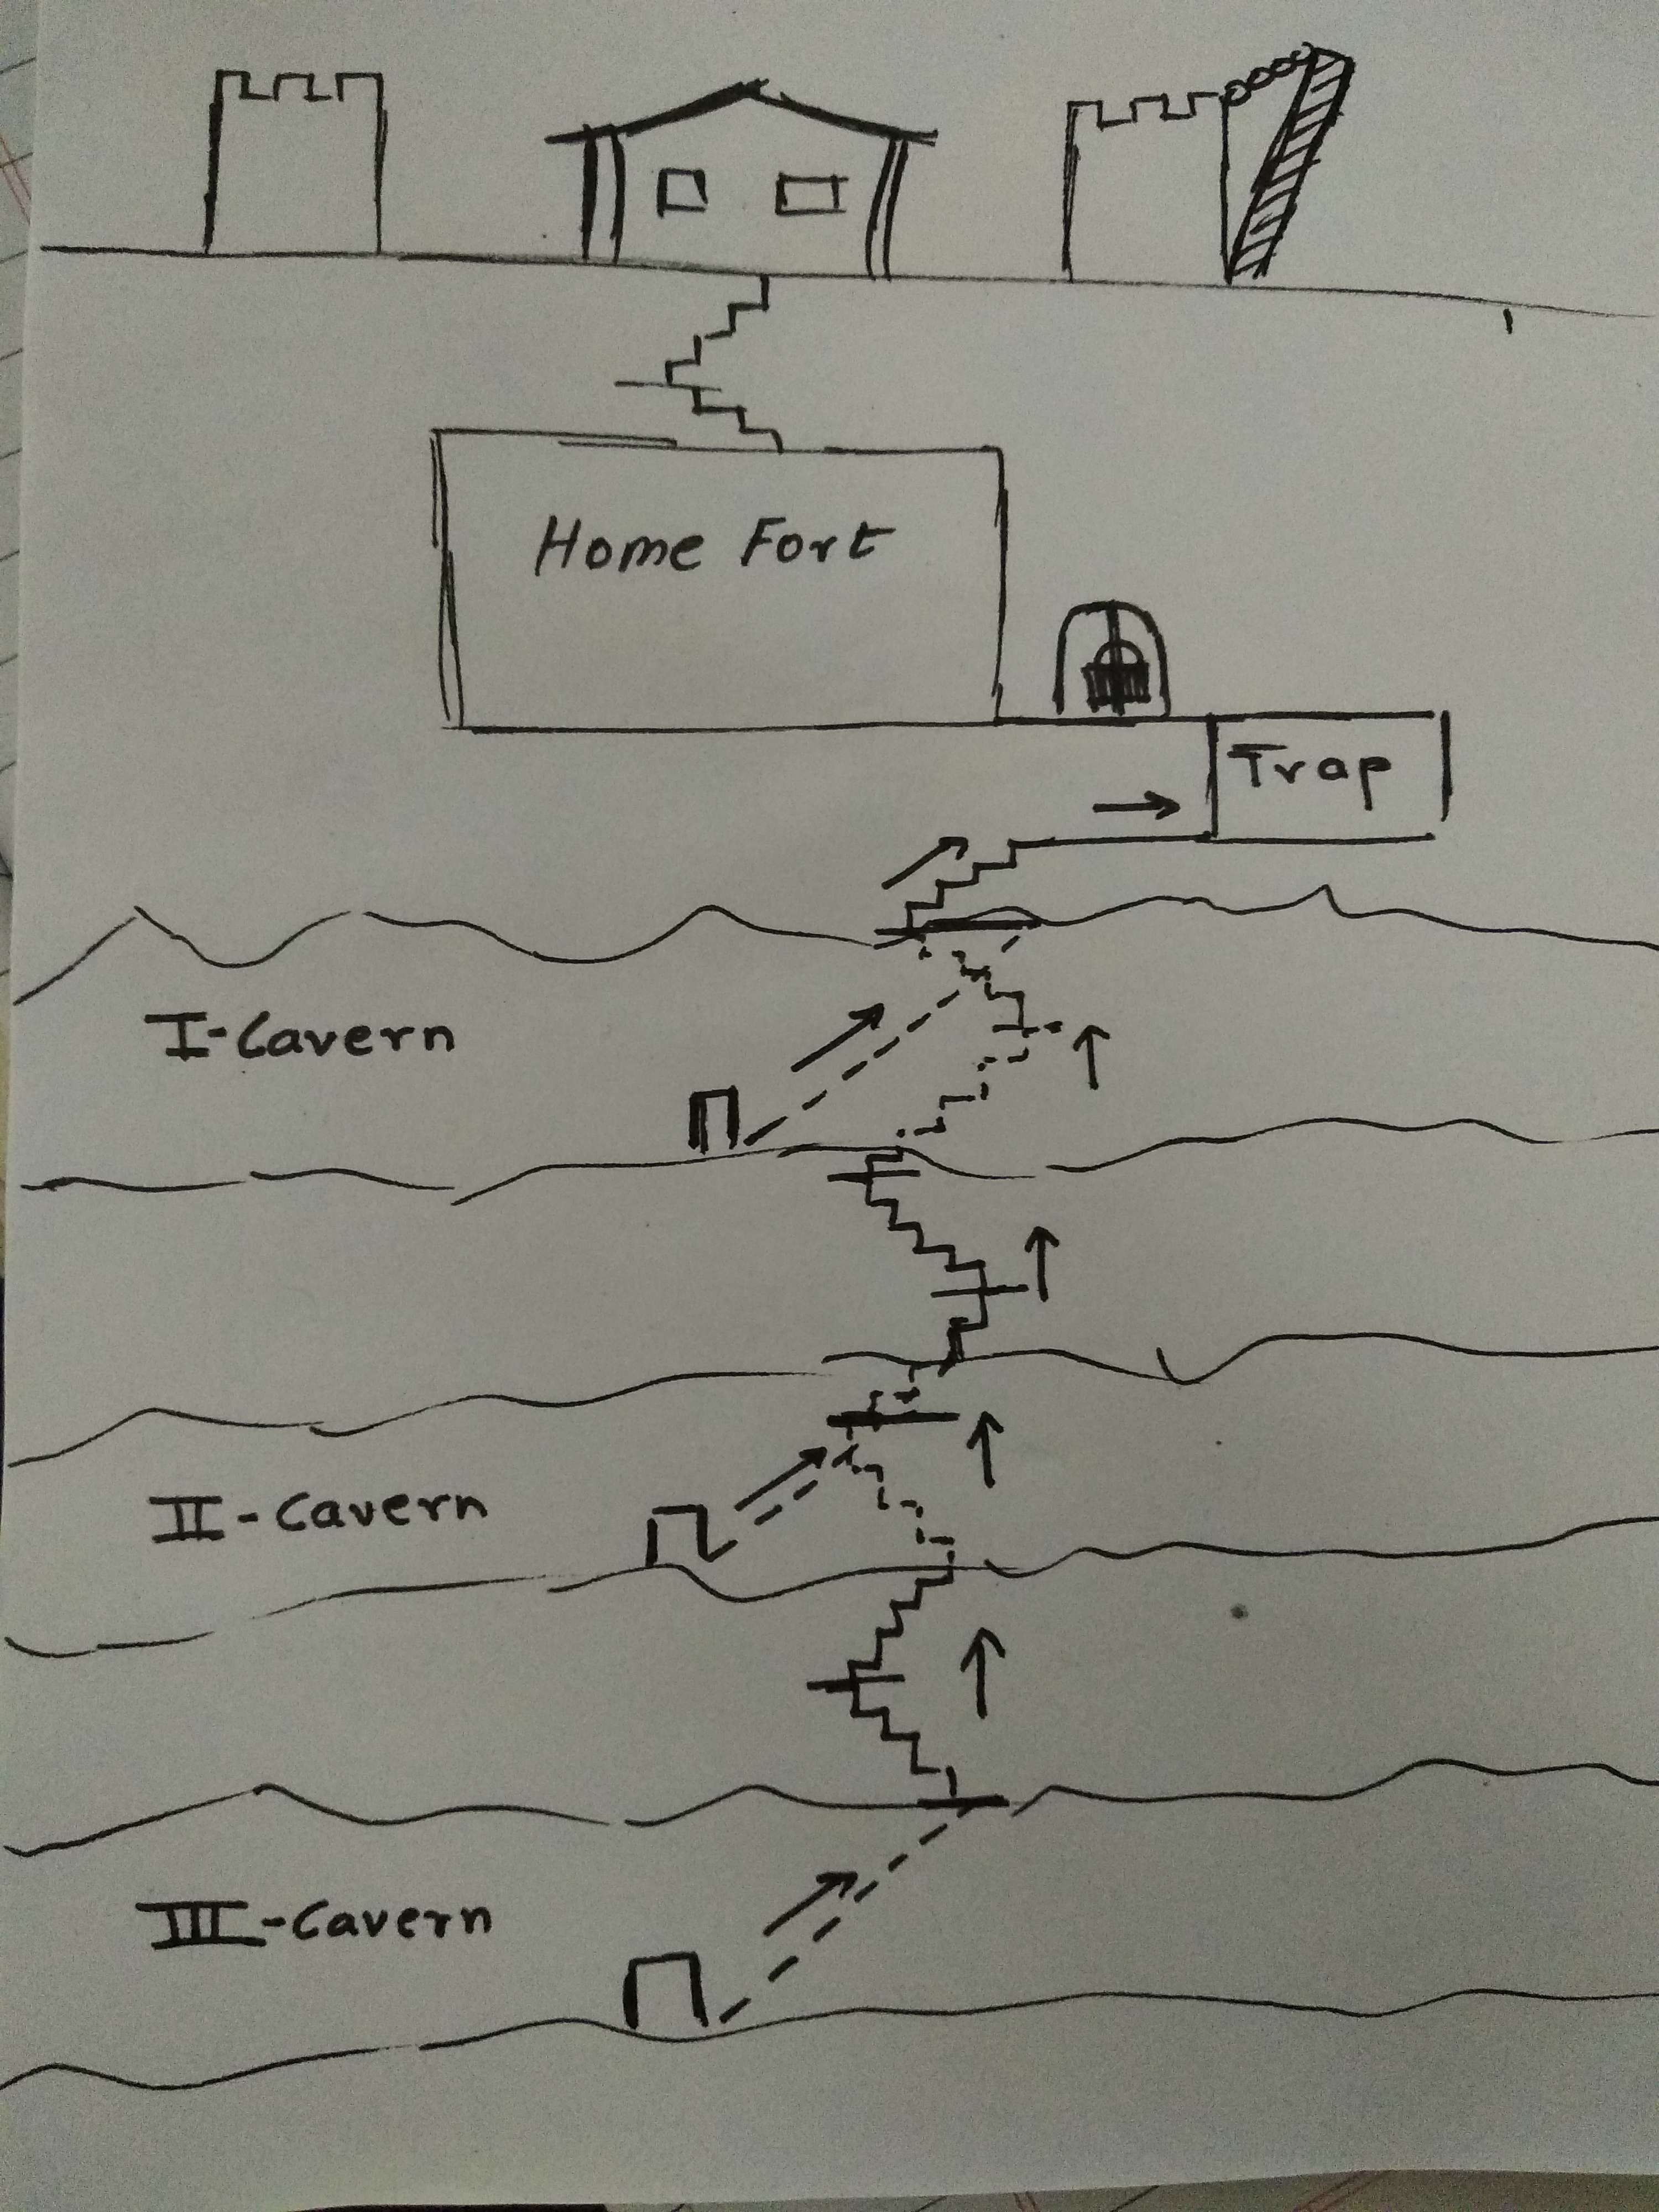 Home Fort
Trap
I-Cavern
II-Cavern
III-Cavern